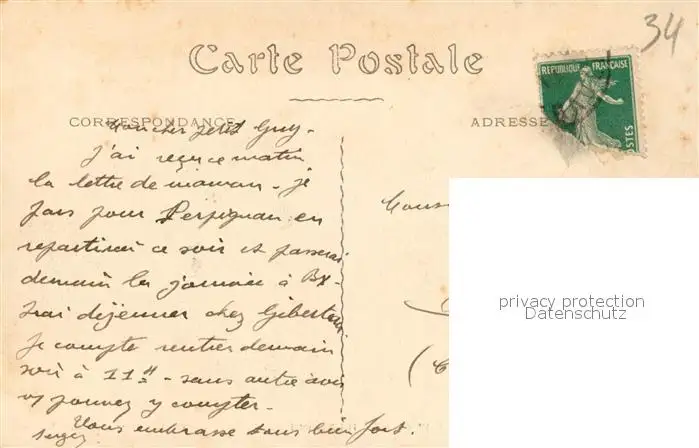 34
Carte Postale
RÉPUBLIQUE FRANÇAISE
POSTES
CORRESPONDANCE
ADRESSE
Mon cher petit Guy -
J'ai reçu ce matin
la lettre de maman - je
pars pour Perpignan en
repartirai ce soir et passerai
demain la journée à Bx -
irai déjeuner chez
je compte rentrer demain
soir à 11 h - sans autre avis
vs pouvez y compter -
Vous embrasse tous bien fort.
privacy protection
Datenschutz